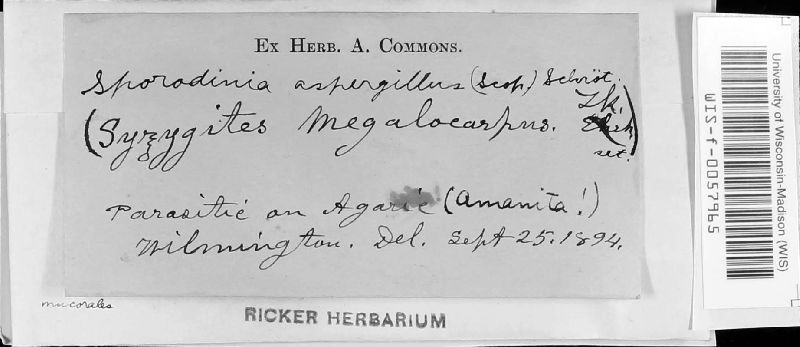 Ex Herb. A. Commons.
Sporodinia aspergillus (Scop.) Schröt.
(Syzygites Megalocarpus. Lk.)
set.
Parasitic on Agaric (Amanita!)
Wilmington. Del. Sept 25. 1894.
mucorales
RICKER HERBARIUM
University of Wisconsin-Madison (WIS)
WIS-f-0057965